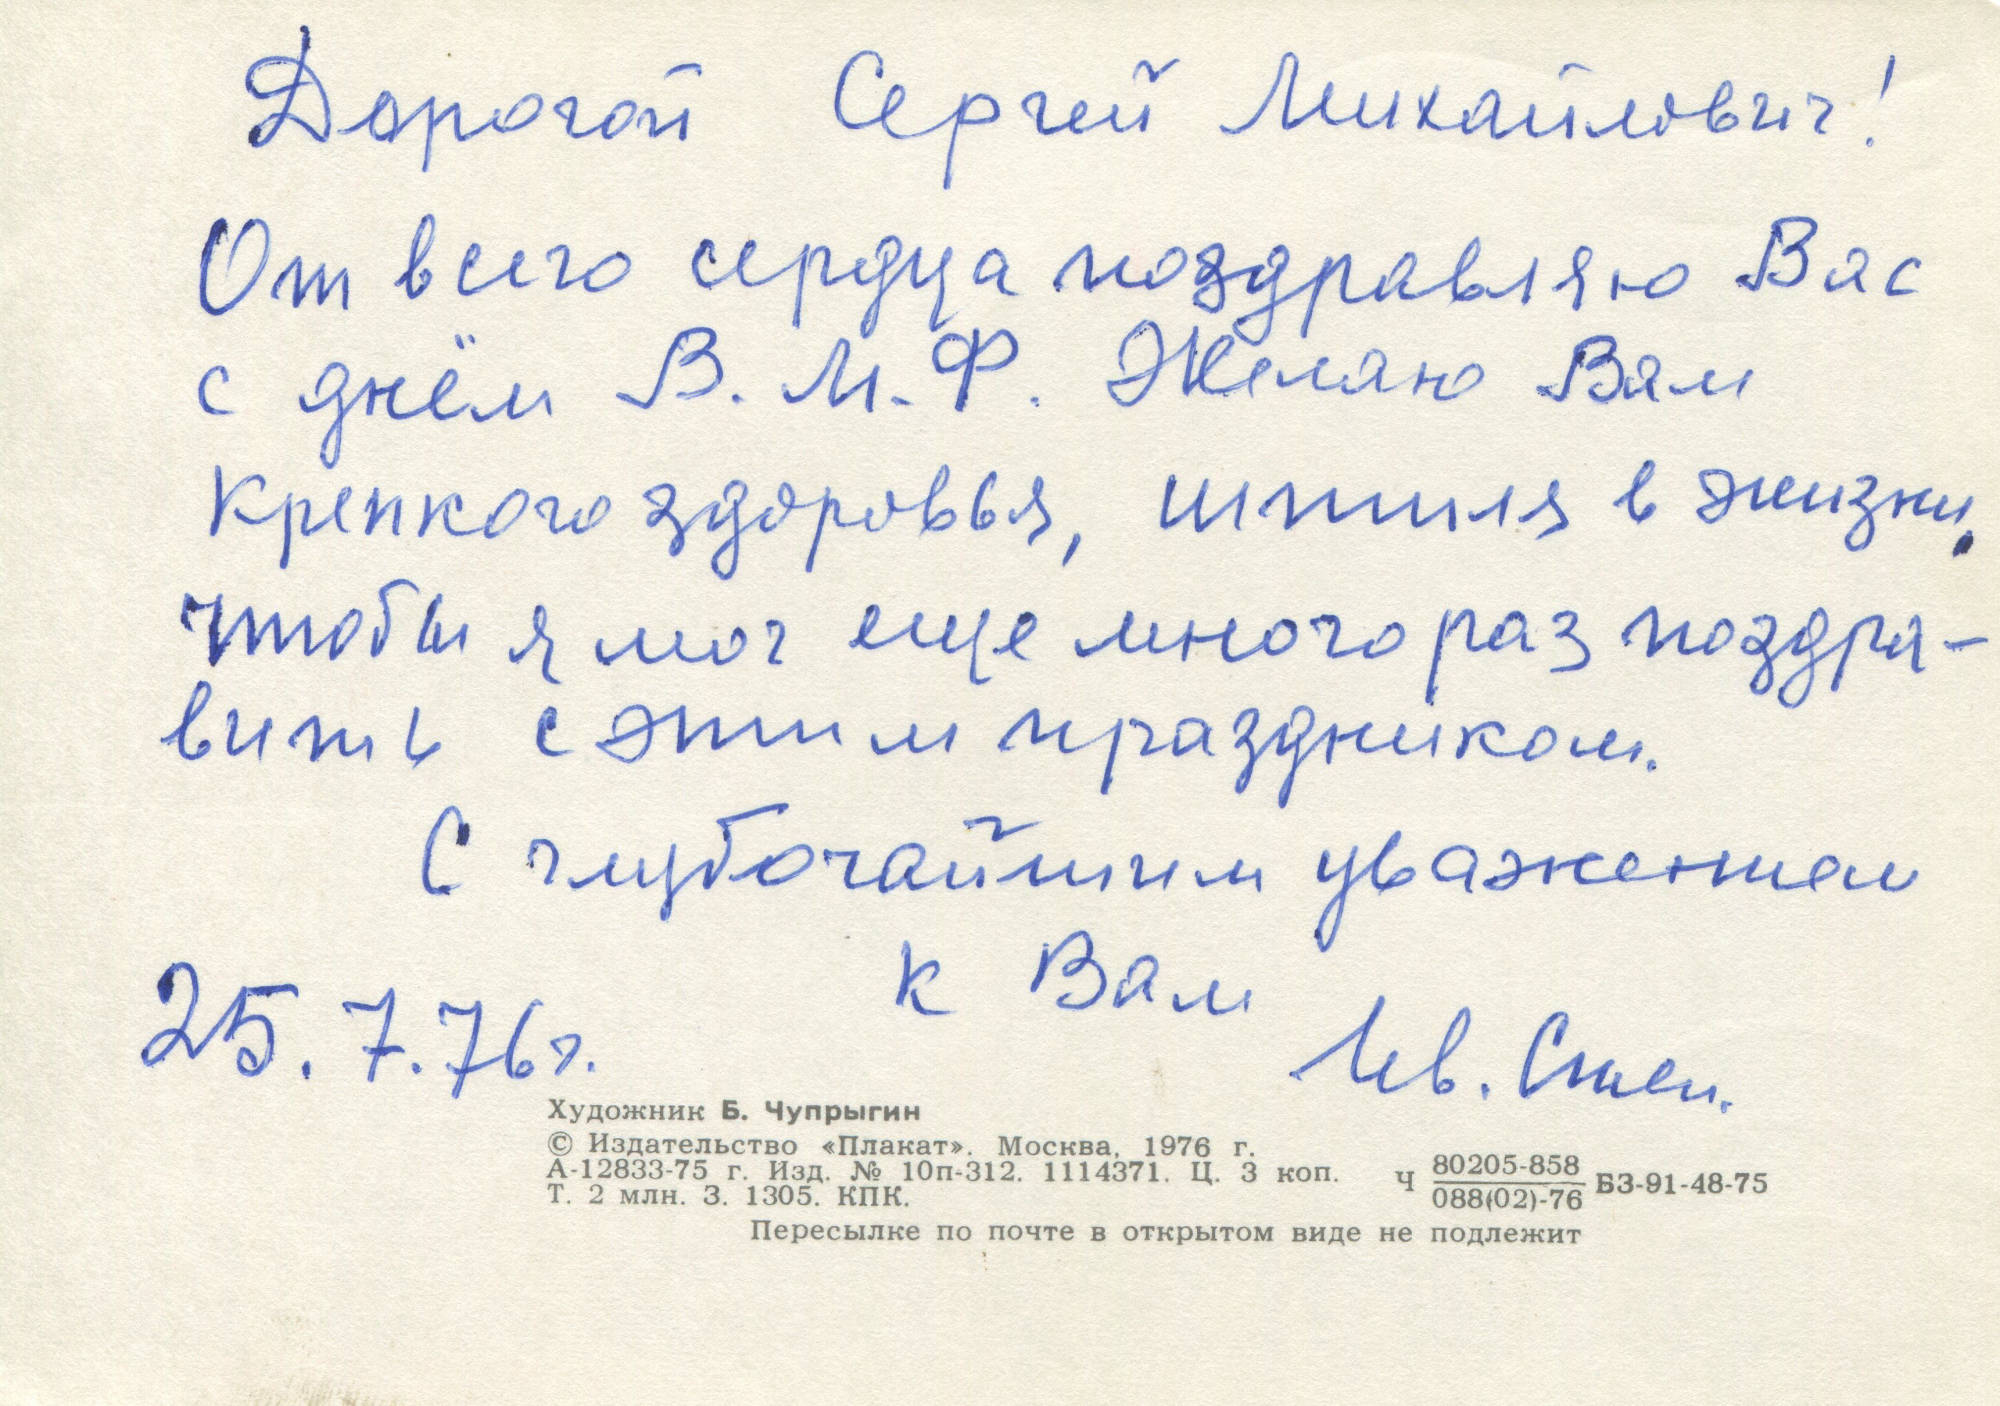 Дорогой Сергей Михайлович!
От всего сердца поздравляю Вас
с днём В.М.Ф. Желаю Вам
крепкого здоровья, штиля в жизни,
чтобы я мог еще много раз поздра-
вить с этим праздником.
С глубочайшим уважением
к Вам
25.7.76г.
Художник Б. Чупрыгин
© Издательство «Плакат». Москва, 1976 г.
А-12833-75 г. Изд. № 10п-312. 1114371. Ц. 3 коп. Ч 80205-858/088(02)-76 БЗ-91-48-75
Т. 2 млн. З. 1305. КПК.
Пересылке по почте в открытом виде не подлежит